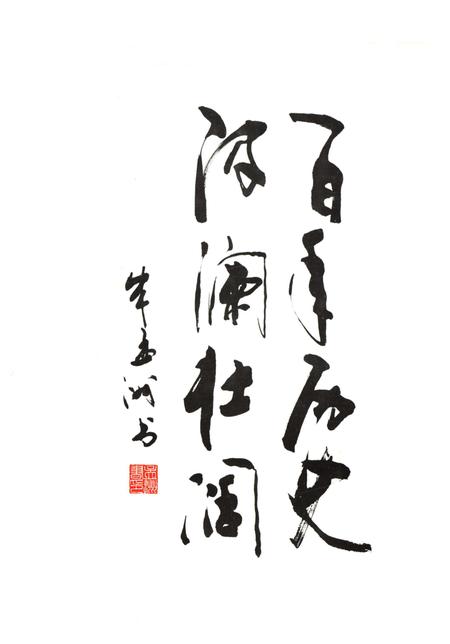 百年历史
波澜壮阔
洲书